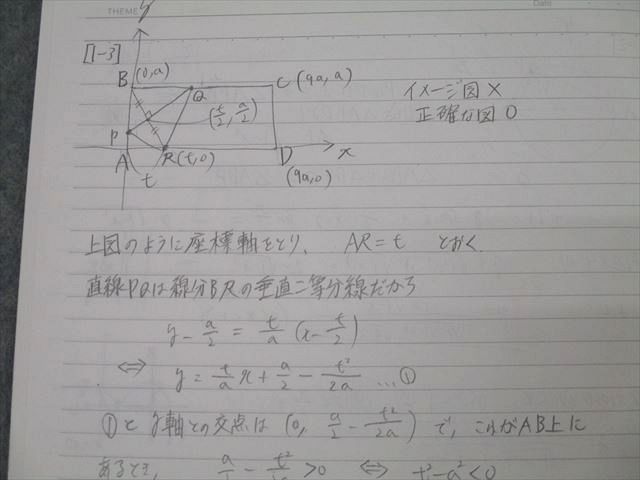 THEME
Date
y
[1-3]
B (0,a)
Q
C (9a, a)
(t/2, a/2)
P
A
R(t,0)
D
x
t
(9a,0)
イメージ図 ×
正確な図 ○
上図のように座標軸をとり、 AR=t とおく
直線PQは線分BRの垂直二等分線だから
y - a/2 = t/a (x - t/2)
⇔ y = t/a x + a/2 - t²/2a …①
①とy軸との交点は (0, a/2 - t²/2a) で、これがAB上に
あるとき、 > 0 ⇔ t² - a² < 0